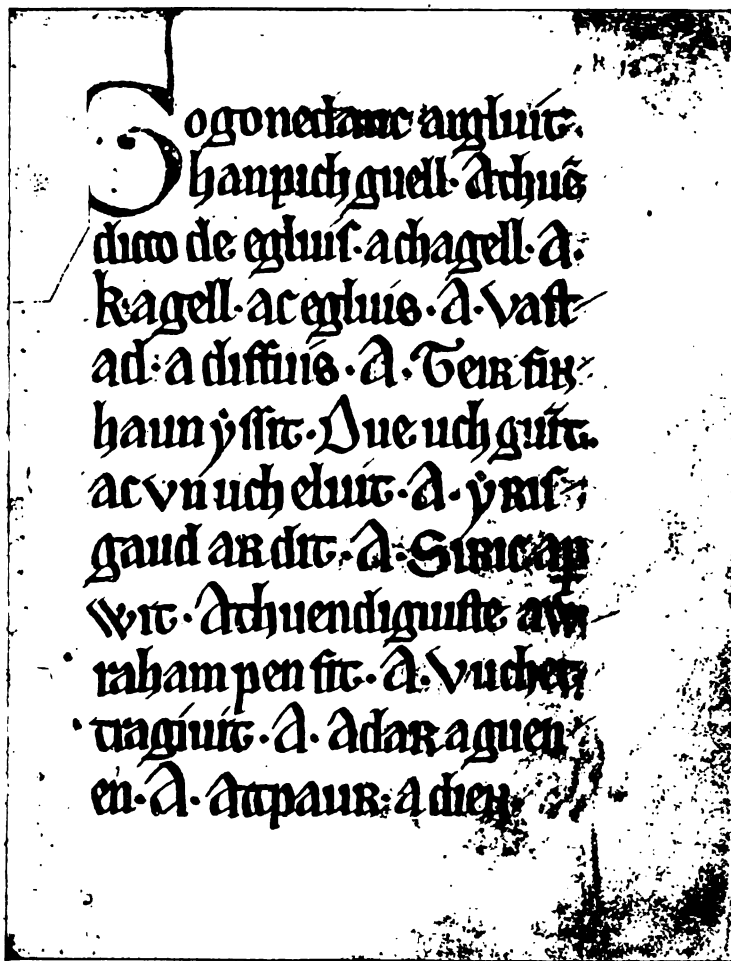 Gogonedauc argluit.
hanpich guell. Athuē
dicco de egluis. a chagell. A.
k. agell. ac egluis. A. Vast
ad. a diffuis. A. Teir fin
haun ẏssit. Due uch guīt.
ac vn uch eluit. A. ẏ Ris
gaud ar dit. A. Siric aꝑ
wit. Athuendiguiste aw
raham pen fit. A. Vuchet
tragiuit. A. Adar a guen
en. A. Attpaur. a dien.